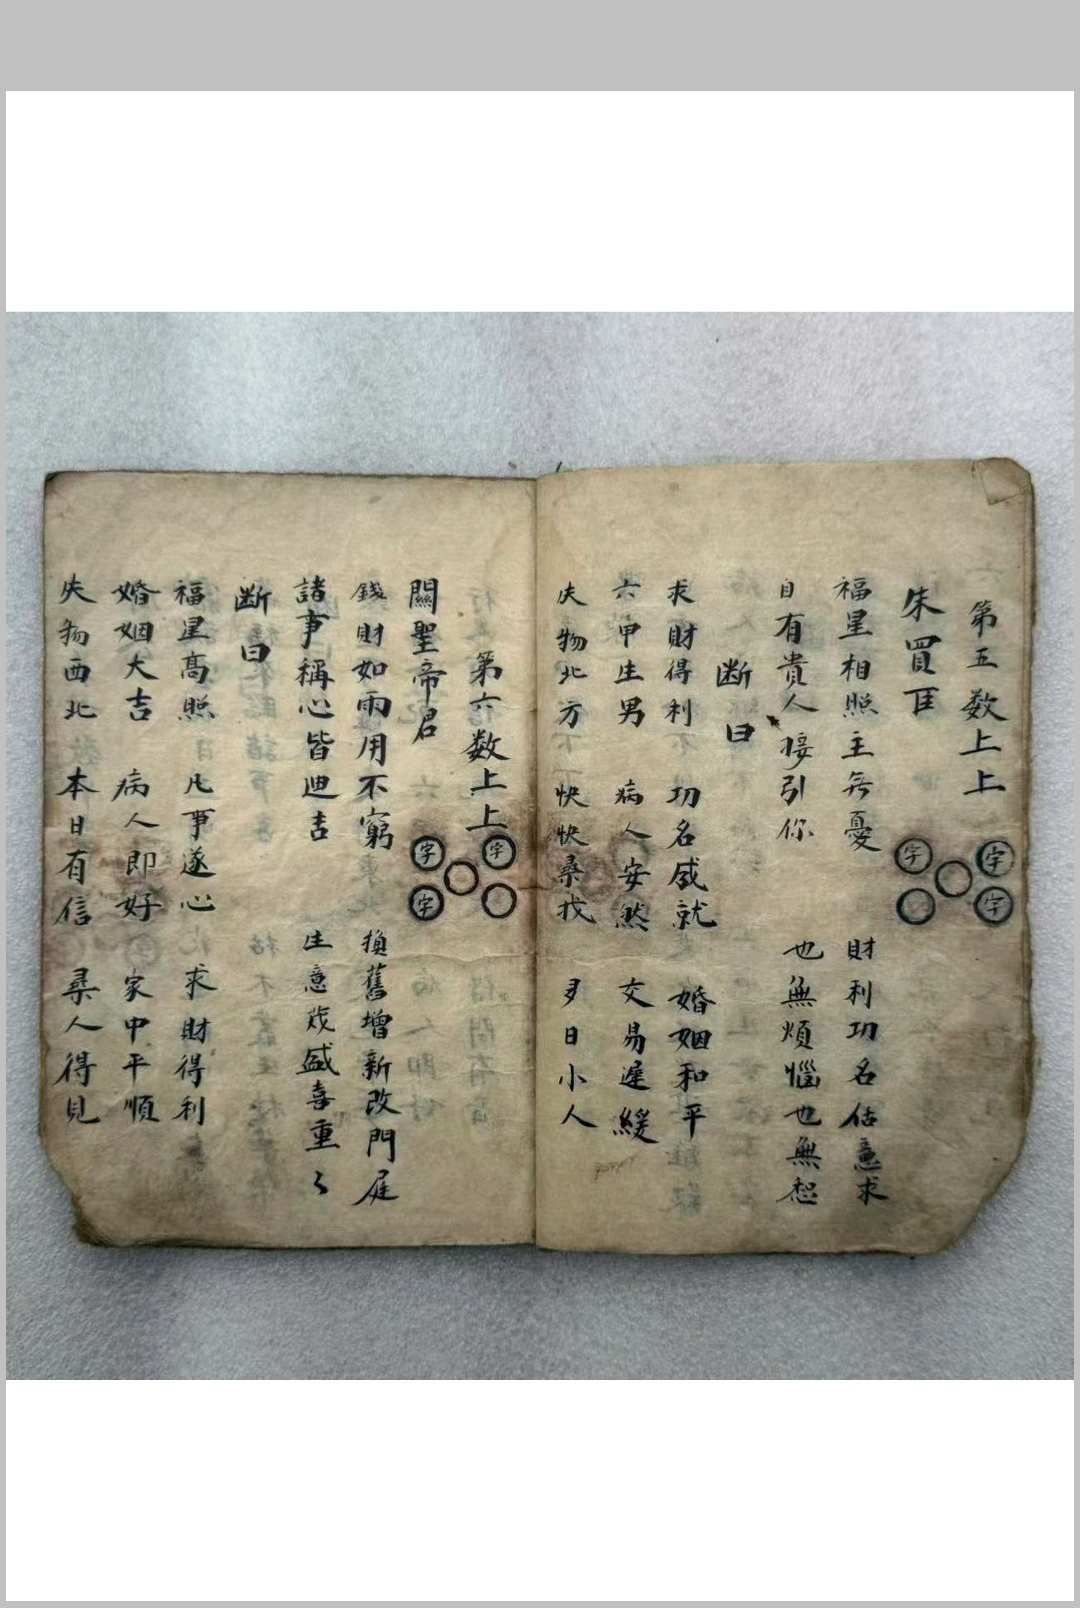 第五数上上
朱買臣
字 字 字
福星相照主無憂 財利功名估意求
自有貴人接引你 也無煩惱也無愁
断曰
求財得利 功名成就 婚姻和平
六甲生男 病人安然 交易遲緩
失物北方 快快桑找 多日小人
第六数上上
關聖帝君
字 字 字
錢財如雨用不窮 換舊增新改門庭
諸事稱心皆迪吉 生意茂盛喜重々
断曰
福星高照 凡事遂心 求財得利
婚姻大吉 病人即好 家中平順
失物西北 本日有信 尋人得見